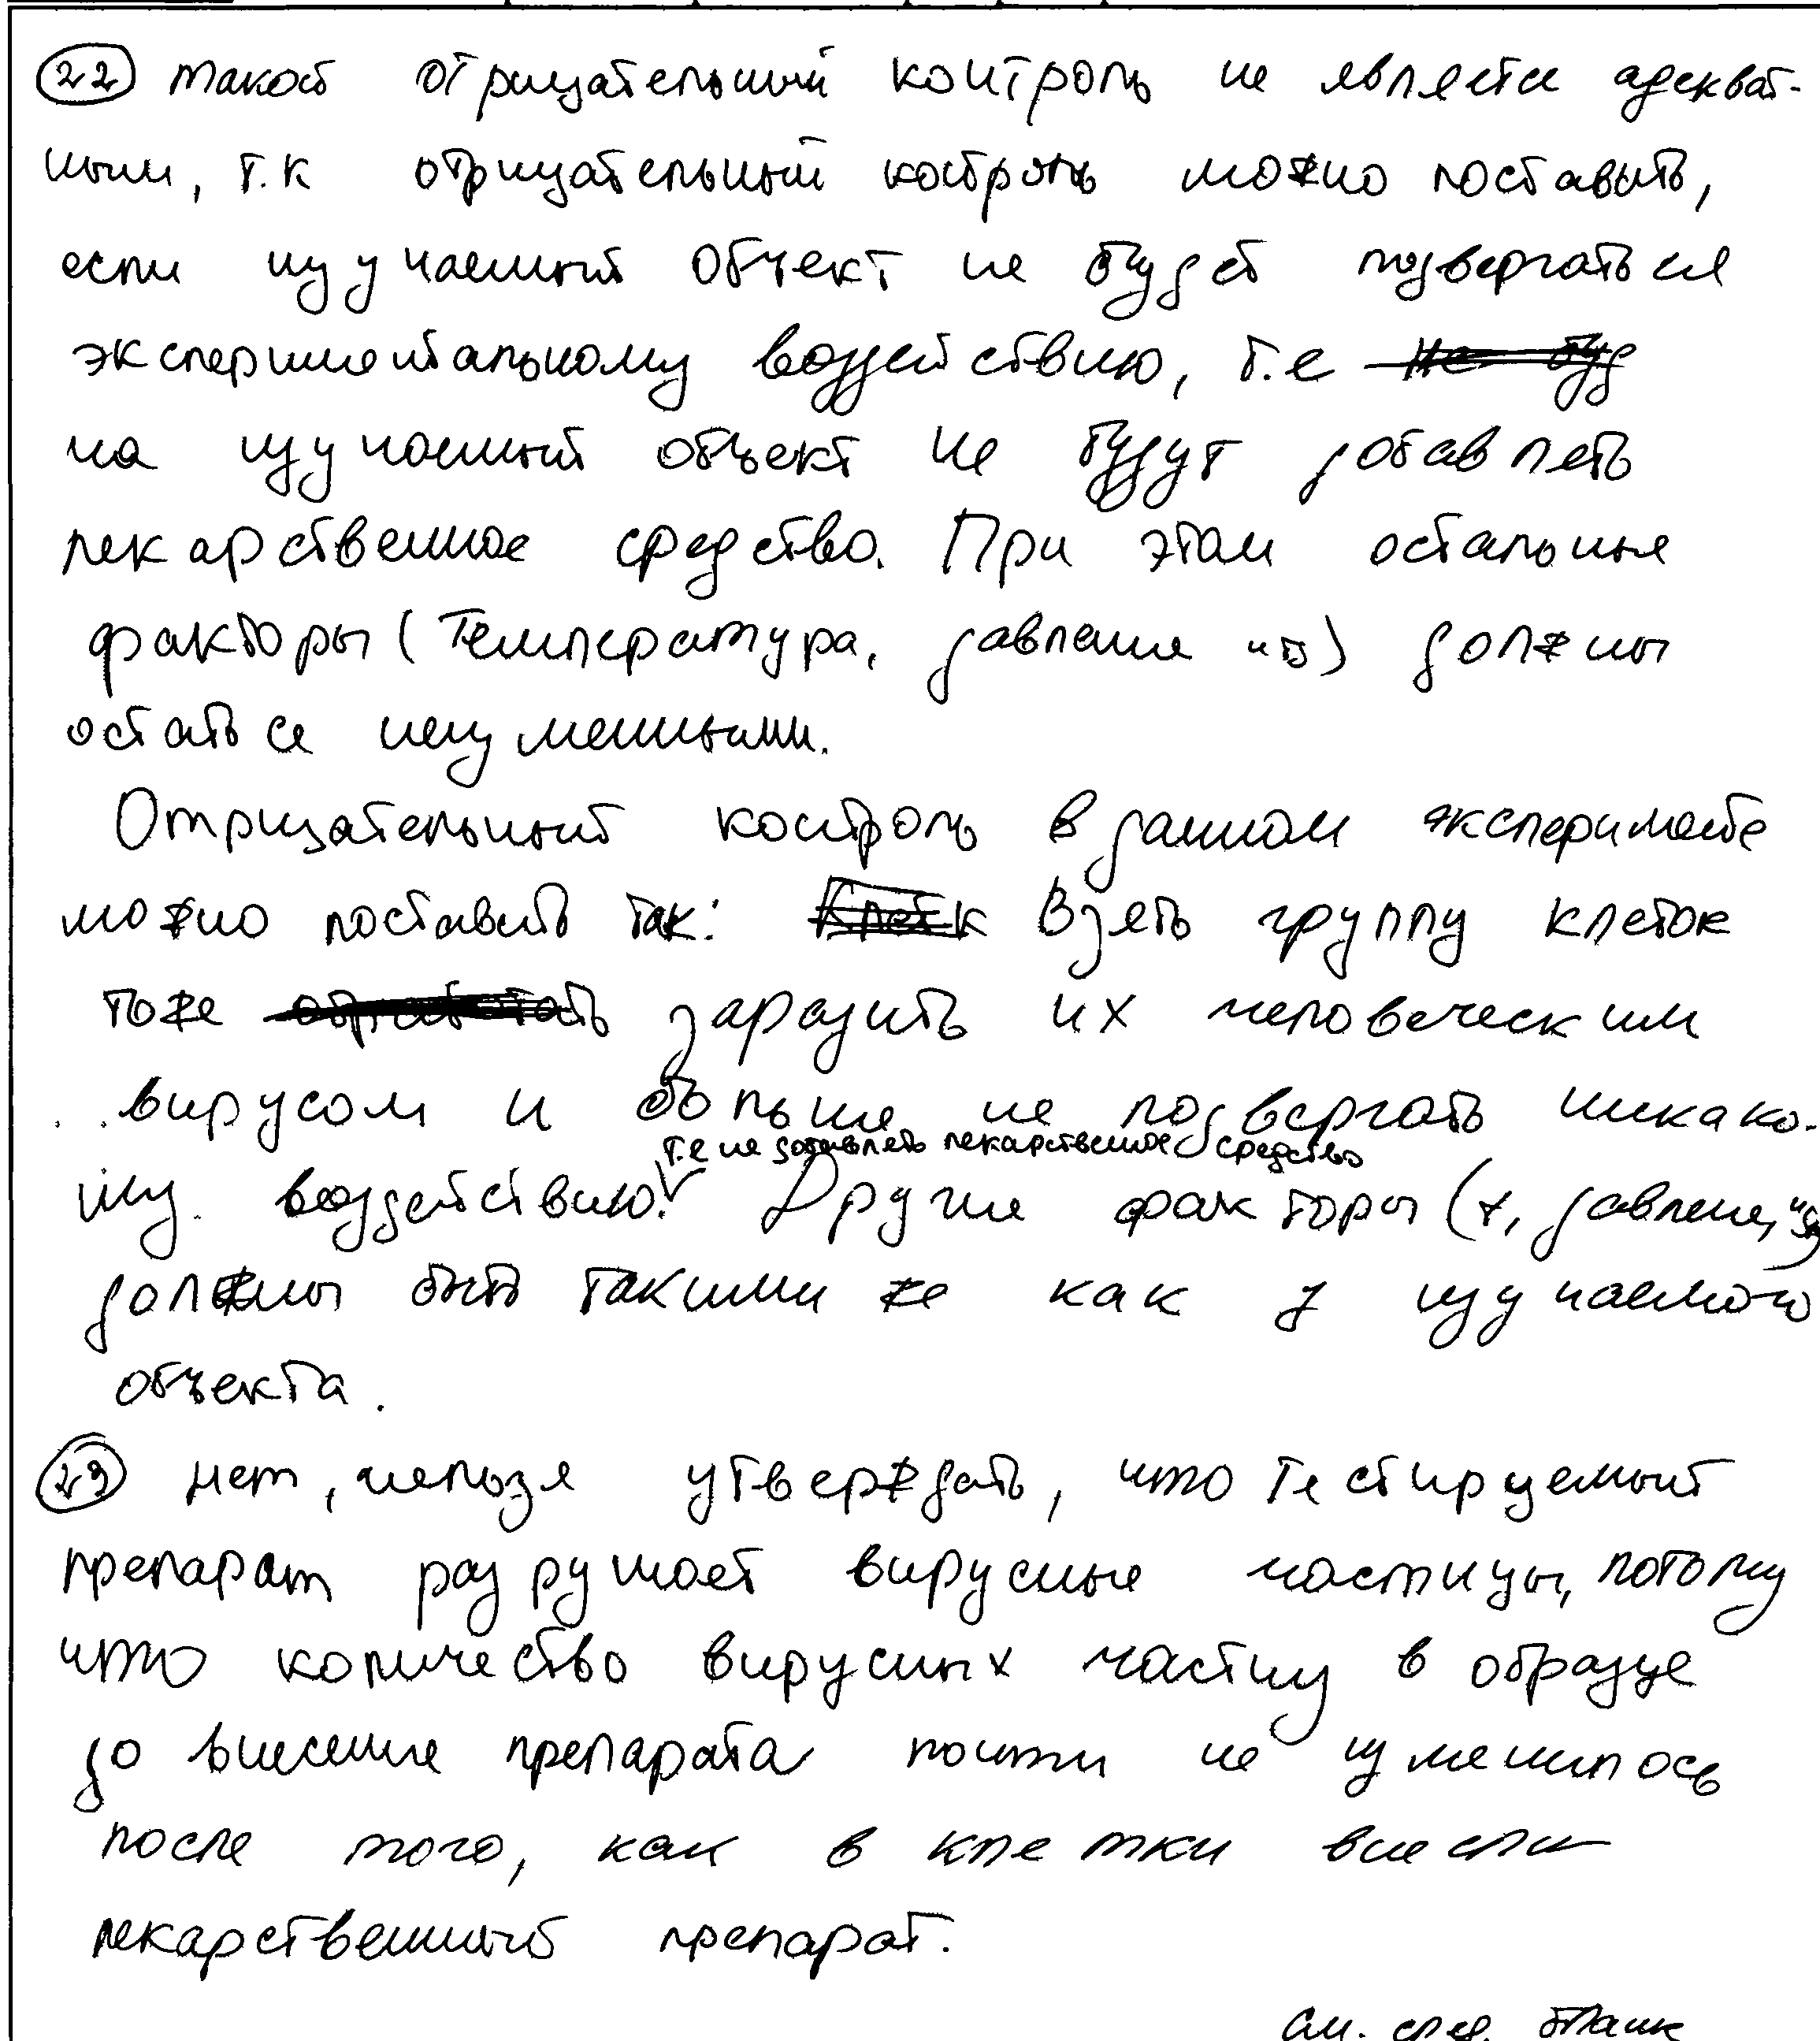 22 Такой отрицательный контроль не является адекват-
ным, т.к отрицательный контроль можно поставить,
если изучаемый объект не будет подвергаться
экспериментальному воздействию, т.е не буд
на изучаемый объект не будут добавлять
лекарственное средство. При этом остальные
факторы (температура, давление и т.д) должны
остаться неизменными.
Отрицательный контроль в данном эксперименте
можно поставить так: Клетк Взять группу клеток
тоже обработать заразить их человеческим
вирусом и больше не подвергать никако-
т.е не добавлять лекарственное средство
му воздействию. Другие факторы (t, давление, и т.д)
должны быть такими же как у изучаемого
объекта.
23 Нет, нельзя утверждать, что тестируемый
препарат разрушает вирусные частицы, потому
что количество вирусных частиц в образце
до внесение препарата почти не изменилось
после того, как в клетки внесли
лекарственный препарат.
см. след. бланк